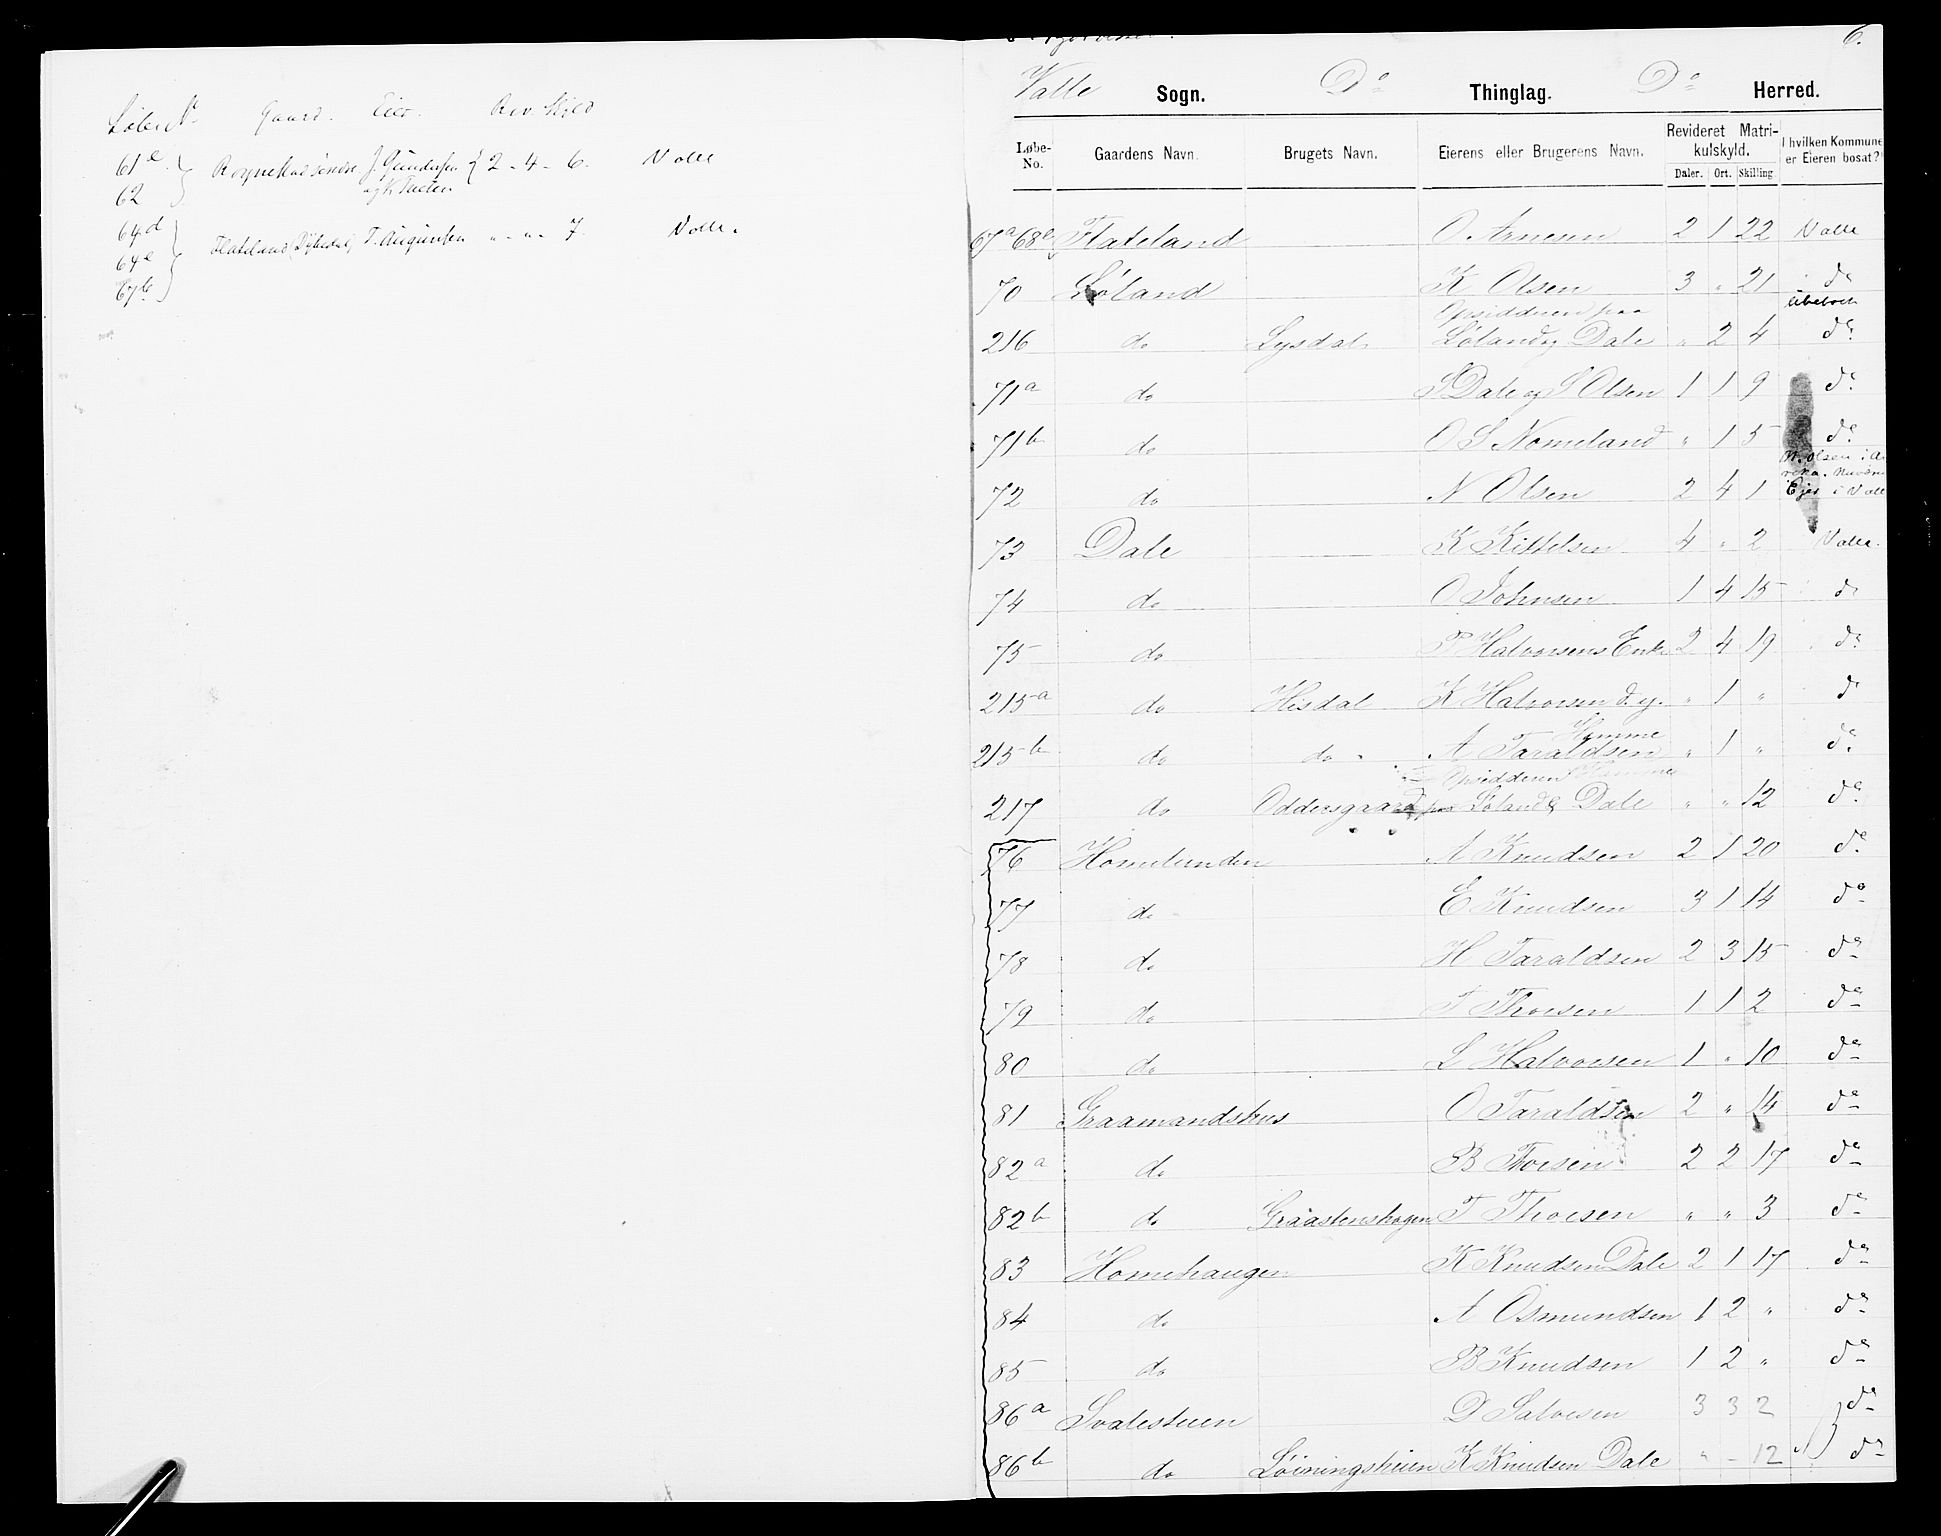 Løbe N. Gaard. Eier. Rev. Skyld
61e
62 J. Gundersen { 2 - 4 - 6. Valle
og K.
64d
64e Flateland T. Augunsen " - " - 7. Valle.
67b
6.
Valle Sogn. Do Thinglag. Do Herred.
Løbe-No. Gaardens Navn. Brugets Navn. Eierens eller Brugerens Navn. Revideret Matrikulskyld. Daler. Ort. Skilling I hvilken Kommune er Eieren bosat?
67a 68e Flateland O Arnesen 2 1 22 Valle
70 Løland K Olsen 3 " 21 do
Ubeboet
Opsidderne paa
216 do Lysdal Løland og Dale " 2 4 do
71a do S Dale og S Olsen 1 1 9 do
71b do O S Nomeland " 1 5 do
N. Olsen i
72 do N Olsen 2 4 1 Ejer i Valle
73 Dale K Kittelsen 4 " 2 Valle.
74 do O Johnsen 1 4 15 do
75 do P Halvorsens Enke 2 4 19 do
215a do Hisdal K Halvorsen d. y. " 1 " do
Homme
215b do do A Taraldsen " 1 " do
Opsidderne Homme
217 do Oddersgaard paa Løland & Dale " " 12 do
76 Homelunden A Knudsen 2 1 20 do
77 do E Knudsen 3 1 14 do
78 do H Taraldsen 2 3 15 do
79 do T Thorsen 1 1 2 do
80 do L Halvorsen 1 " 10 do
81 Graamandshus O Taraldsen 2 " 14 do
82a do B Torsen 2 2 17 do
82b do Graastenshagen T Thorsen " " 3 do
83 Homehaugen K Knudsen Dale 2 1 17 do
84 do A Osmundsen 1 2 " do
85 do B Knudsen 1 2 " do
86a Svalestuen D Salvesen 3 3 2 do
86b do Løiningsheien K Knudsen Dale " - 12 do